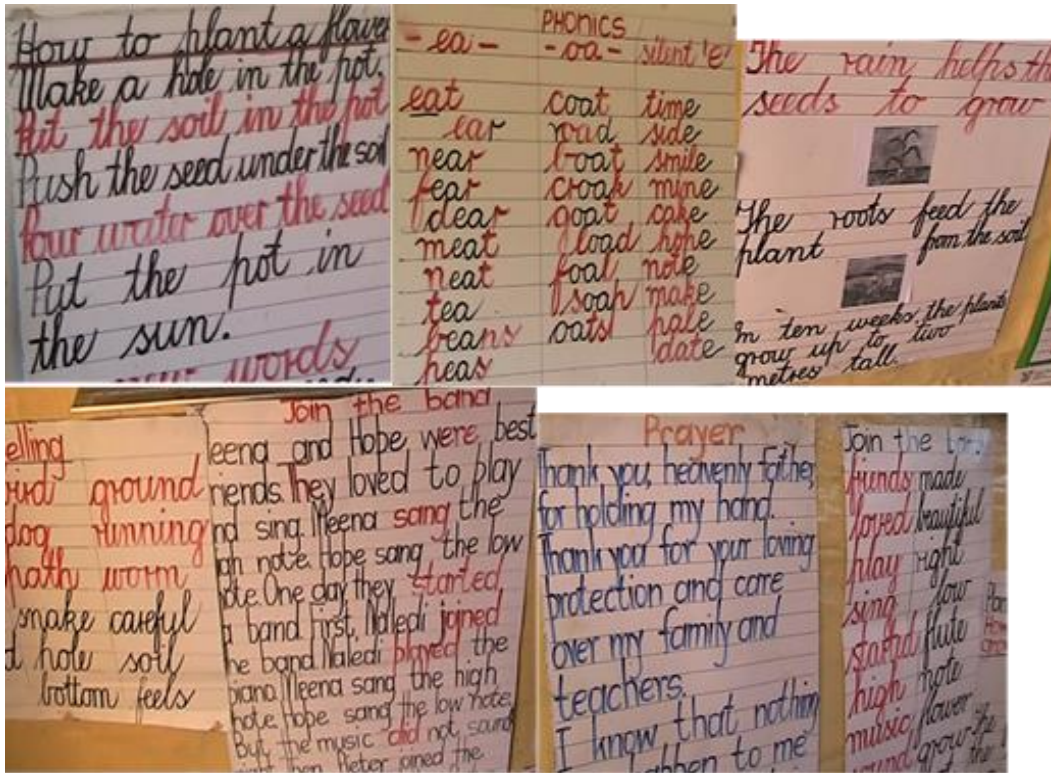 How to plant a flower
Make a hole in the pot.
Put the soil in the pot
Push the seed under the soil
Pour water over the seed
Put the pot in
the sun.
words
PHONICS
-ea- -oa- silent 'e'
eat coat time
ear road side
near boat smile
fear croak mine
dear goat cake
meat load hope
neat foal note
tea soap make
beans oats pale
peas date
The rain helps th
seeds to grow
The roots feed the
plant from the soil
In ten weeks the plants
grow up to two
metres tall.
elling
ground
dog running
path worm
snake careful
d hole soil
bottom feels
Join the band
eena and Hope were best
riends. They loved to play
nd sing. Meena sang the
gh note. Hope sang the low
ote. One day they started
a band. First, Naledi joined
he band. Naledi played the
piano. Meena sang the high
note. Hope sang the low note.
But the music did not sound
then Pieter joined the
Prayer
Thank you, heavenly Father,
for holding my hand.
Thank you for your loving
protection and care
over my family and
teachers.
I know that nothing
happen to me
Join the
friends made
loved beautiful
play right
sing low
started flute
high note
music flower
sound grow the